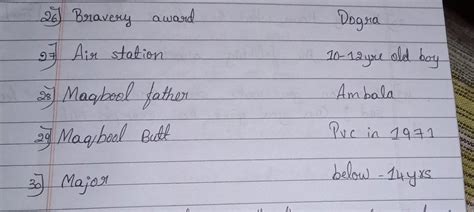 26] Bravery award Dogra
27] Air station 10-12yrs old boy
28] Maqbool father Ambala
29] Maqbool Butt Pvc in 1971
30] Major below - 14yrs